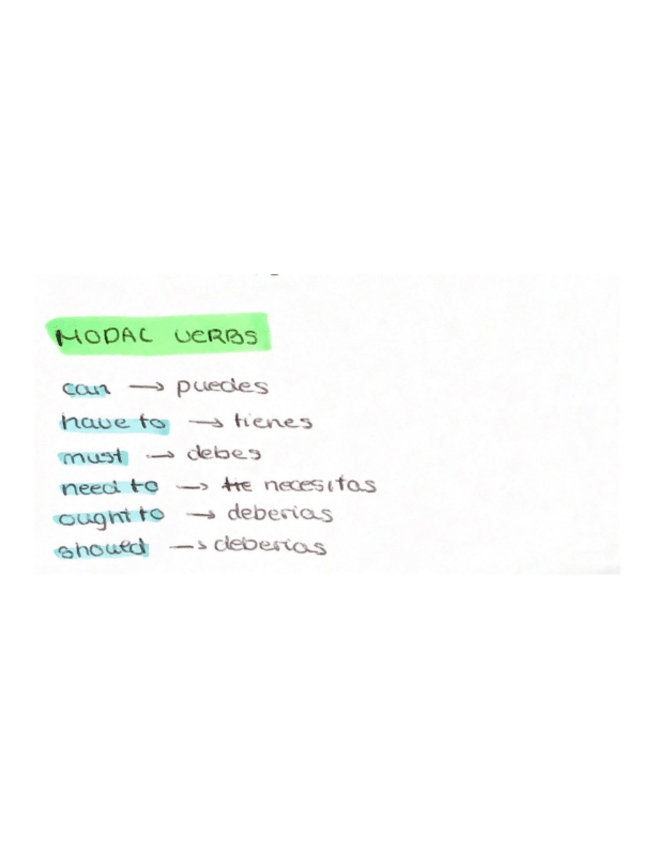 MODAL VERBS
can → puedes
have to → tienes
must → debes
need to → necesitas
ought to → deberias
showed → deberias